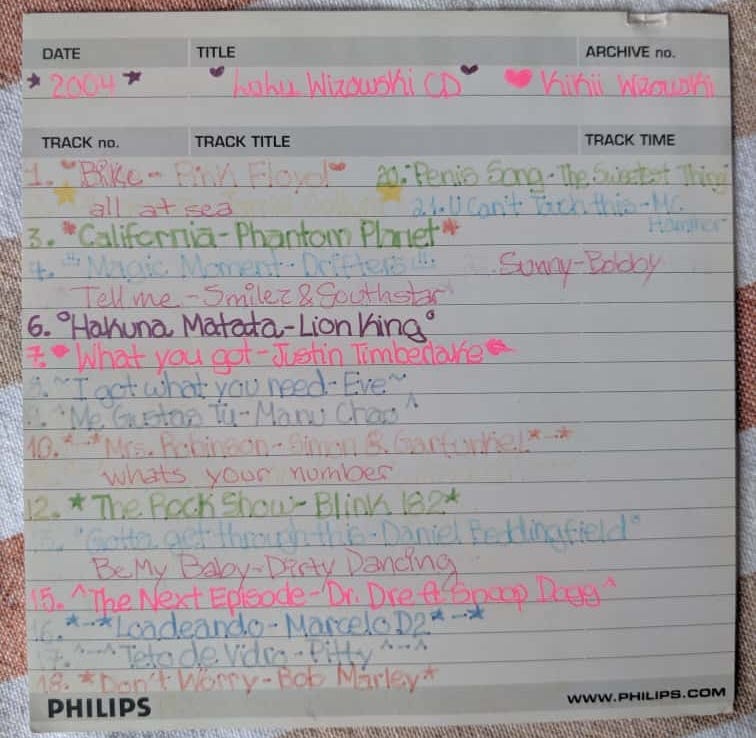 DATE TITLE ARCHIVE no.
*2004* ♥ Luhu Wizowski CD ♥ ♥ Kikii Wizowski
TRACK no. TRACK TITLE TRACK TIME
1. "Bike - Pink Floyd" 20. Penis Song - The Sweetest Thing
all at sea 21. U Can't Touch this - MC
Hammer
3. *California - Phantom Planet*
4. "Magic Moment - Drifters" Sunny - Bobby
Tell me - Smilez & Southstar
6. °Hakuna Matata - Lion King°
7. ♥ What you got - Justin Timberlake ♥
~I got what you need - Eve~
^Me Gustas Tu - Manu Chao^
10. *-*Mrs. Robinson - Simon & Garfunkel*-*
whats your number
12. *The Rock Show - Blink 182*
"Gotta get through this - Daniel Beddingfield"
Be My Baby - Dirty Dancing
15. ^The Next Episode - Dr. Dre ft Snoop Dogg^
16. *-*Loadeando - Marcelo D2*-*
17. ^-^Teto de Vidro - Pitty^-^
18. *Don't Worry - Bob Marley*
PHILIPS WWW.PHILIPS.COM